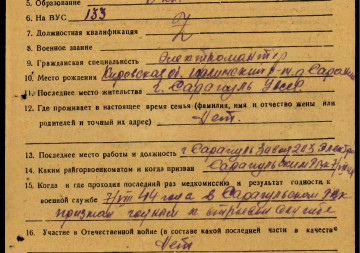 5. Образование
6. На ВУС 133
7. Должностная квалификация
8. Военное звание
9. Гражданская специальность Электромонтер
10. Место рождения Кировская обл.
11. Последнее место жительства г. Сарапуль УАССР
12. Где проживает в настоящее время семья (фамилия, имя и отчество жены или
родителей и точный их адрес) Нет.
13. Последнее место работы и должность г. Сарапуль Завод 203
14. Каким райгорвоенкоматом и когда призван Сарапульским РВК
15. Когда и где проходил последний раз медкомиссию и результат годности к
военной службе 7/VIII 44 года в Сарапульском РВК
признан годным к строевой службе
16. Участие в Отечественной войне (в составе какой последней части в качестве
Нет